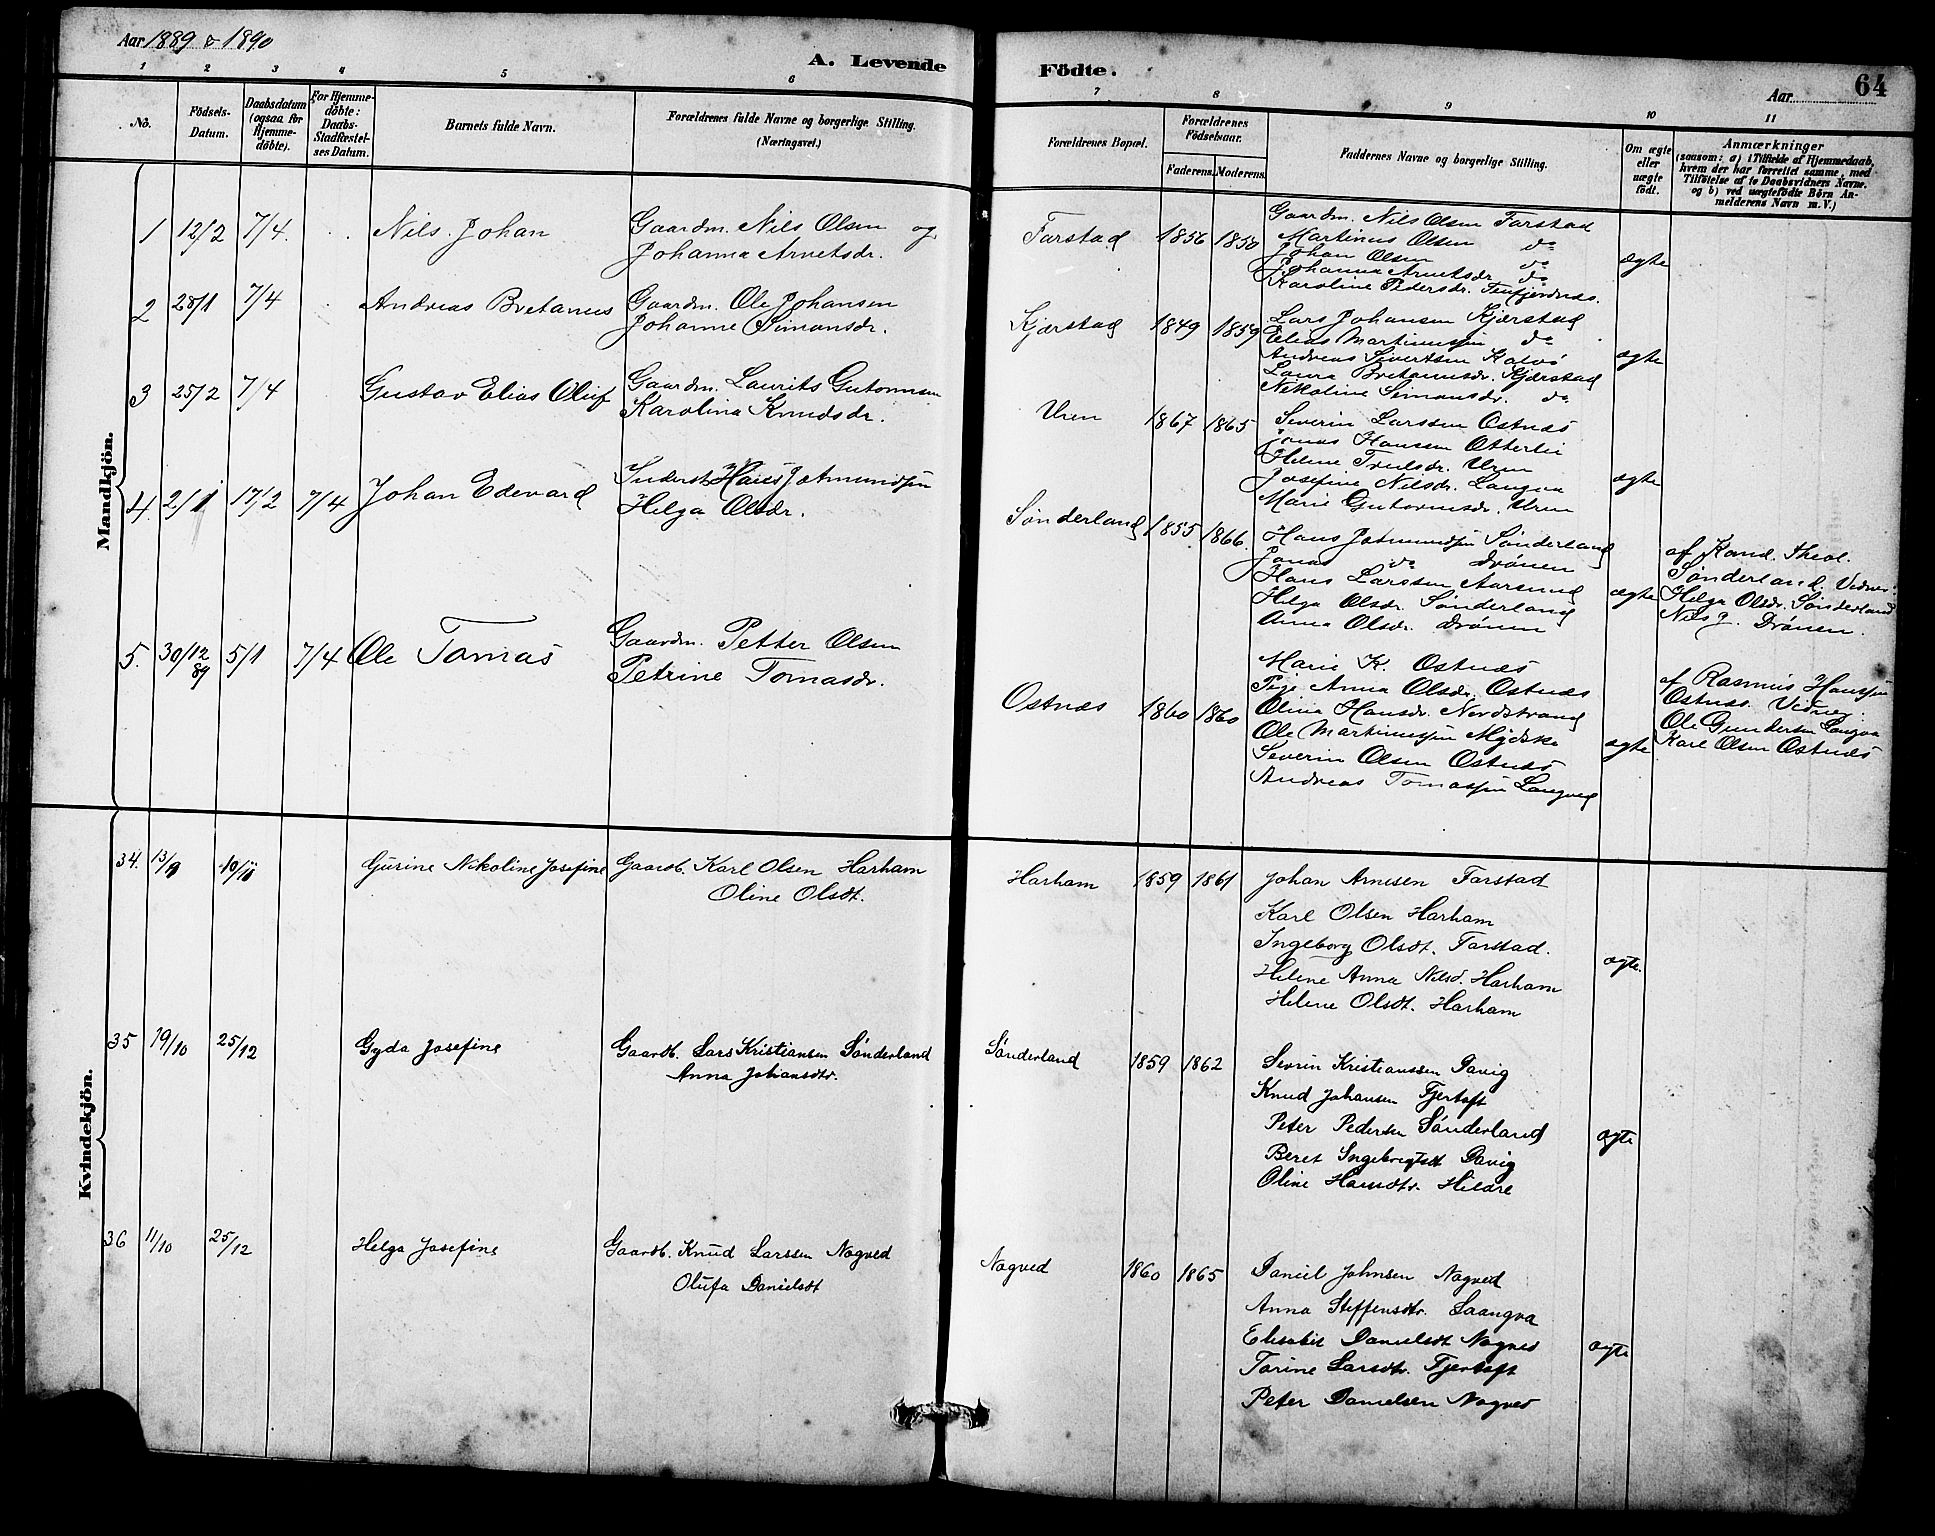 Aar 1889 & 1890
A. Levende
Födte.
Aar
64
1 2 3 4 5 6
7 8 9 10 11
No.
Födsels-
Datum.
Daabsdatum
(ogsaa for
Hjemme-
døbte).
For Hjemme-
døbte:
Daabs-
Stadfestel-
ses Datum.
Barnets fulde Navn.
Forældrenes fulde Navne og borgerlige Stilling.
(Næringsvei.)
Forældrenes Bopæl.
Forældrenes
Födselsaar.
Faderens. Moderens.
Faddernes Navne og borgerlige Stilling.
Om ægte
eller
uægte
födt.
Anmærkninger
(saasom: a) i Tilfælde af Hjemmedaab,
hvem der har forrettet samme, med
Tilföielse af to Daabsvidners Navne.
og b) ved uægtefödte Börn An-
melderens Navn m. V.)
Mandkjön.
1 12/2 7/4. Nils Johan
Gaardm. Nils Olsen og
Johanna Arnetsdr.
Farstad 1856 1850
Gaardm. Nils Olsen Farstad
Martinus Olsen do
Johan Olsen do
Johanna Arnetsdr. do
Karoline Pedersdr.
ægte
2 28/1 7/4 Andreas Bretanus
Gaardm. Ole Johansen
Johanne Simonsdr.
Kjærstad 1849 1859
Lars Johansen Kjærstad
Elias Martinussen do
Andreas Sivertsen Kalvö
Laura Bretanusdr. Kjærstad
Nikoline Simonsdr. do
ægte
3 25/2 7/4 Gustav Elias Oluf
Gaardm. Laurits Gutormsen
Karolina Knudsdr.
Uren 1867 1865
Severin Larssen Ostnæs
Jonas Hanssen Otterlei
Helene Trulsdr. Uren
Josefine Nilsdr. Longva
Marie Gutormsdr. Uren
ægte
4. 2/1 17/2 7/4 Johan Edevard
Inderst Hans J. Amundsen
Helga Olsdr.
Sønderland 1855 1866.
Hans J. Amundsen Sønderland
Jonas do Drönen
Hans Larssen Aarsund
Helga Olsdr. Sønderland
Anna Olsdr. Drönen
ægte
af Kand. theol.
Sønderland. Vidner:
Helga Olsdr. Sønderland
Nils J. Drönen.
5. 30/12 89 5/1 7/4 Ole Tomas
Gaardm. Petter Olsen
Petrine Tomasdr.
Ostnæs 1860 1860
Marie K. Ostnæs
Pige Anna Olsdr. Ostnæs
Olina Hansdr. Nordstrand
Ole Martinussen Myklebø
Severin Olsen Ostnæs
Andreas Tomassen Longva
ægte
af Rasmus Hanssen
Ostnæs. Vidner:
Ole Gundersen Longva
Karl Olsen Ostnæs
Kvindekjön.
34. 13/9 10/11 Gurine Nikoline Josefine
Gaardb. Karl Olsen Harham
Oline Olsdt.
Harham 1859 1861
Johan Arnesen Farstad
Karl Olsen Harham
Ingeborg Olsdt. Farstad.
Helene Anna Nilsd. Harham
Helene Olsdt. Harham
ægte.
35 19/10 25/12 Gyda Josefine
Gaardb. Lars Kristiansen Sönderland
Anna Johansdtr.
Sönderland 1859 1862
Sevrin Kristianssen Davig
Knud Johansen Fjertoft
Peter Pedersen Sönderland
Beret Ingebrigtsdt Davig
Oline Hansdtr. Hildre
ægte
36 11/10 25/12 Helga Josefine
Gaardb. Knud Larssen Nogved
Olufa Danielsdt
Nogved 1860 1865
Daniel Johnsen Nogved
Anna Steffensdtr. Laangva
Elisabet Danielsdt Nogved
Torine Larsdtr. Fjertoft
Peter Danielsen Nogved
ægte